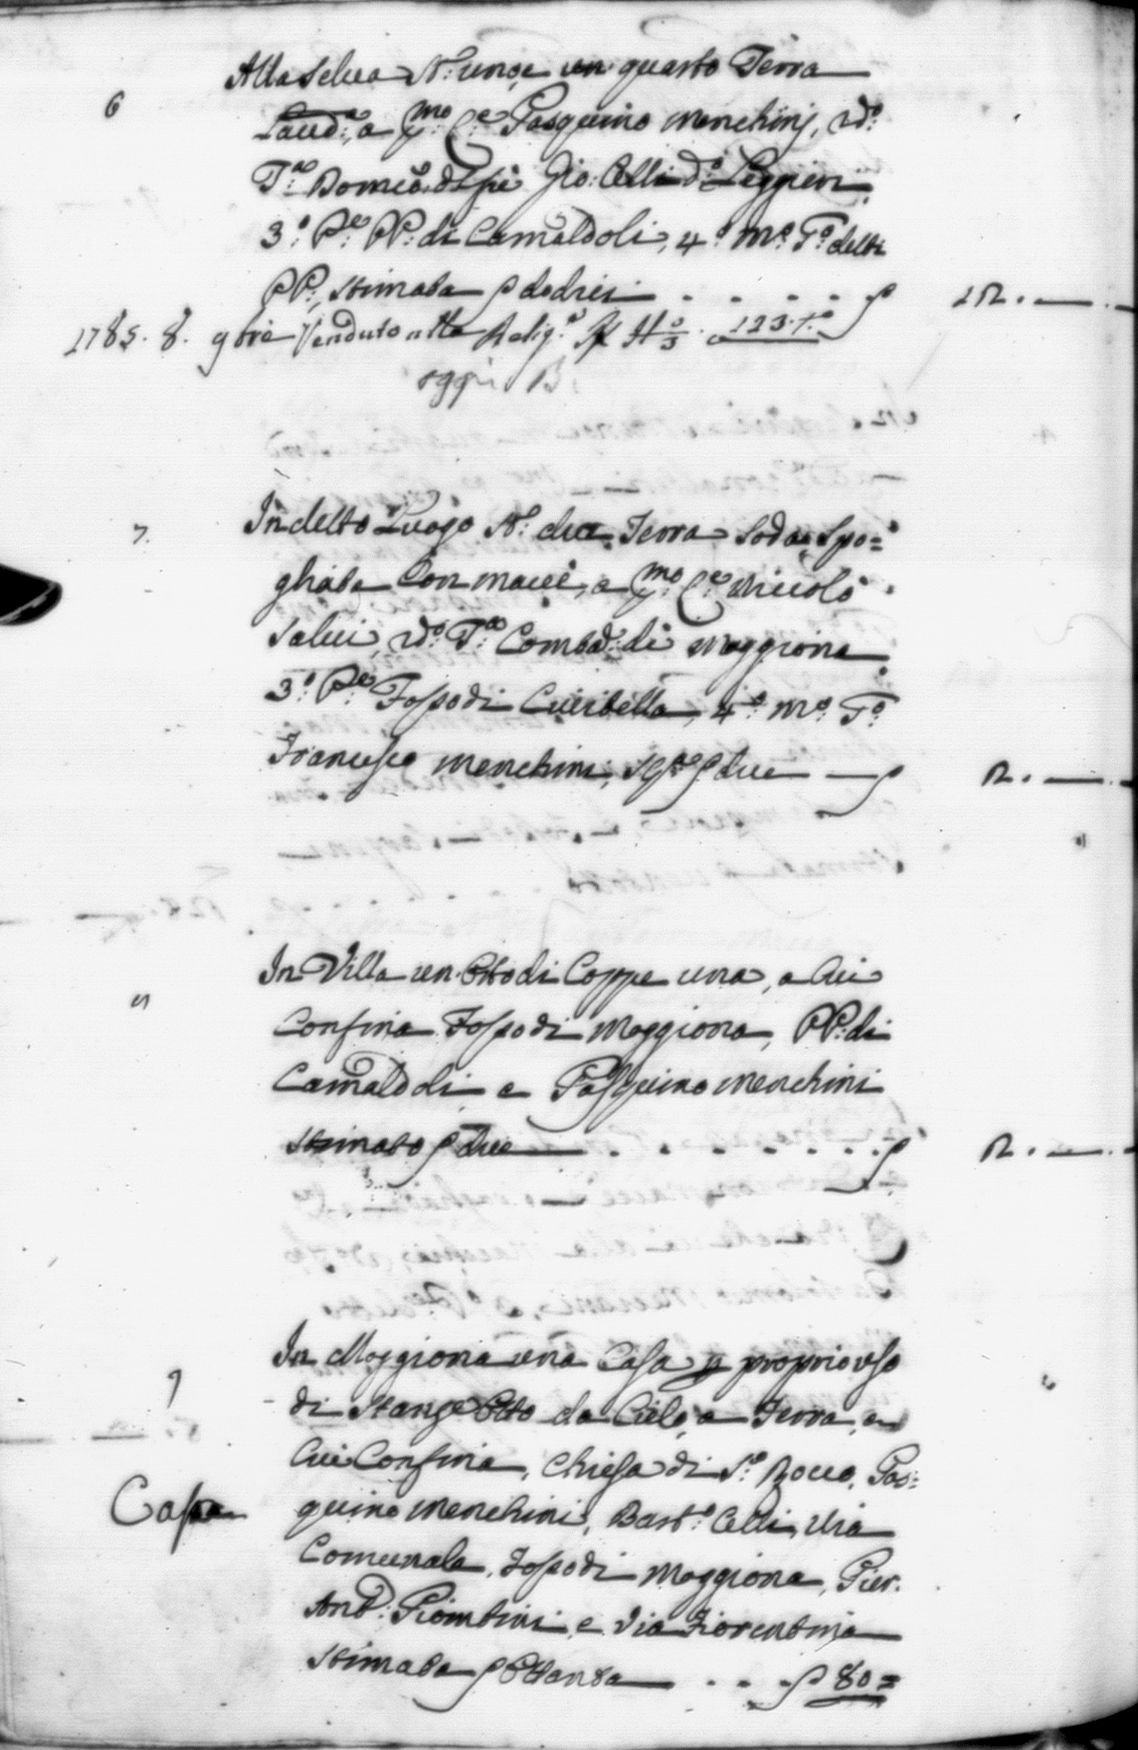 6
Alla Selva N.° uno, e un quarto Terra
Laud.a, a p.mo C.e Pasquino Menchinj, 2d.o
T.no Domco, d. Gio: Celli d.o Leggieri,
3.° P.e PP: di Camaldoli, 4.° M.o T.o detti
PP:, stimata S dodici . . . . . S 12. —
1785. 8. 9bre Venduto alla Relig.e H 3. 123.
oggi B.
7.
In detto Luogo N.° due Terra Soda, Spo=
gliata Con macie, a p.mo C.e Niccolò
Salvi, 2d.o T.no Comtà: di Moggiona
3.° P.e Fosso di Cuiribella, 4.° M.o T.o
Francesco Menchini, S due — S 2. —
8
In Villa un Orto di Coppe una, a Cui
Confina Fosso di Moggiona, PP: di
Camaldoli e Pasquino Menchini
Stimato S due — . . . . . . . S 2. —
9
In Moggiona una Casa p proprio uso
di Stanze Otto da Cielo, a Terra, a
Cui Confina, Chiesa di S.o Rocco, Pas=
Casa
quino Menchini, Bast.o Celli, Via
Comunale, Fosso di Moggiona, Pier:
Ant.: Piombini e Via Fiorentina
Stimata S Ottanta — . . . S 80 =